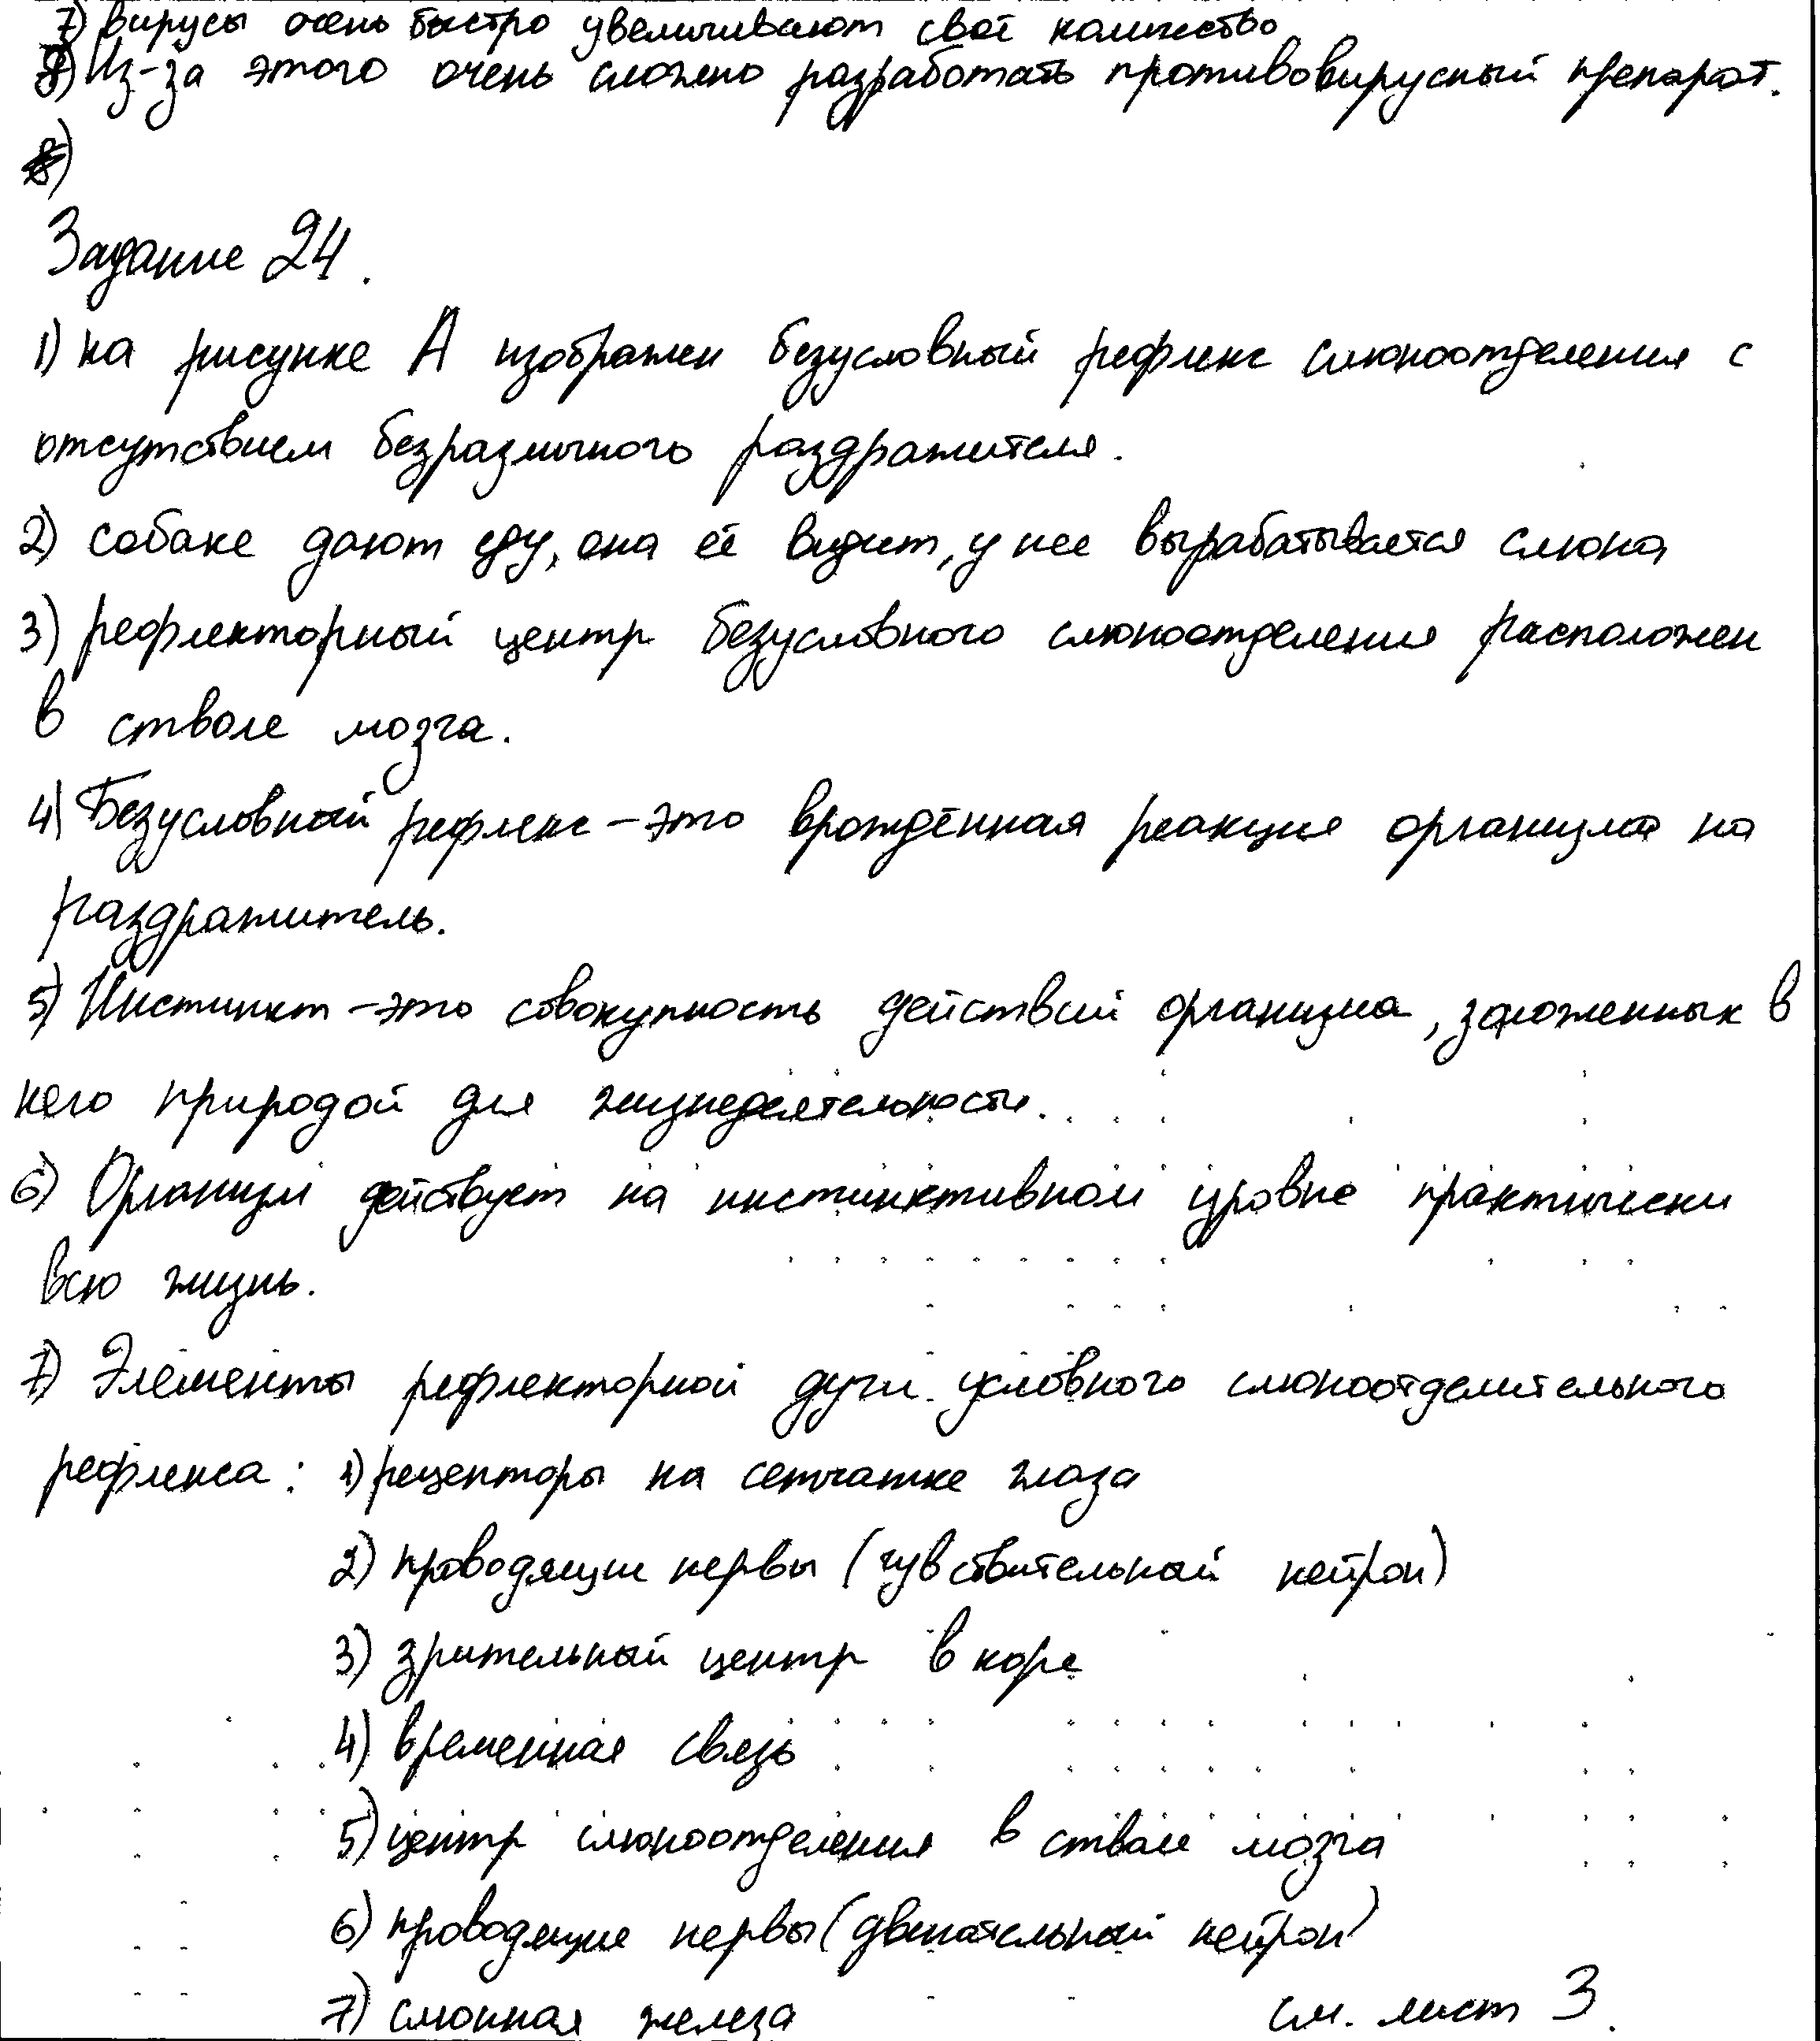 7) вирусы очень быстро увеличивают своё количество
8) Из-за этого очень сложно разработать противовирусный препарат.
8)
Задание 24.
1) на рисунке А изображен безусловный рефлекс слюноотделения с
отсутствием безразличного раздражителя.
2) собаке дают еду, она её видит, у нее вырабатывается слюна
3) рефлекторный центр безусловного слюноотделения расположен
в стволе мозга.
4) Безусловный рефлекс - это врождённая реакция организма на
раздражитель.
5) Инстинкт - это совокупность действий организма, заложенных в
него природой для жизнедеятельности.
6) Организм действует на инстинктивном уровне практически
всю жизнь.
7) Элементы рефлекторной дуги условного слюноотделительного
рефлекса: 1) рецепторы на сетчатке глаза
2) проводящие нервы (чувствительный нейрон)
3) зрительный центр в коре
4) временная связь
5) центр слюноотделения в стволе мозга
6) проводящие нервы (двигательный нейрон)
7) слюнная железа см. лист 3.